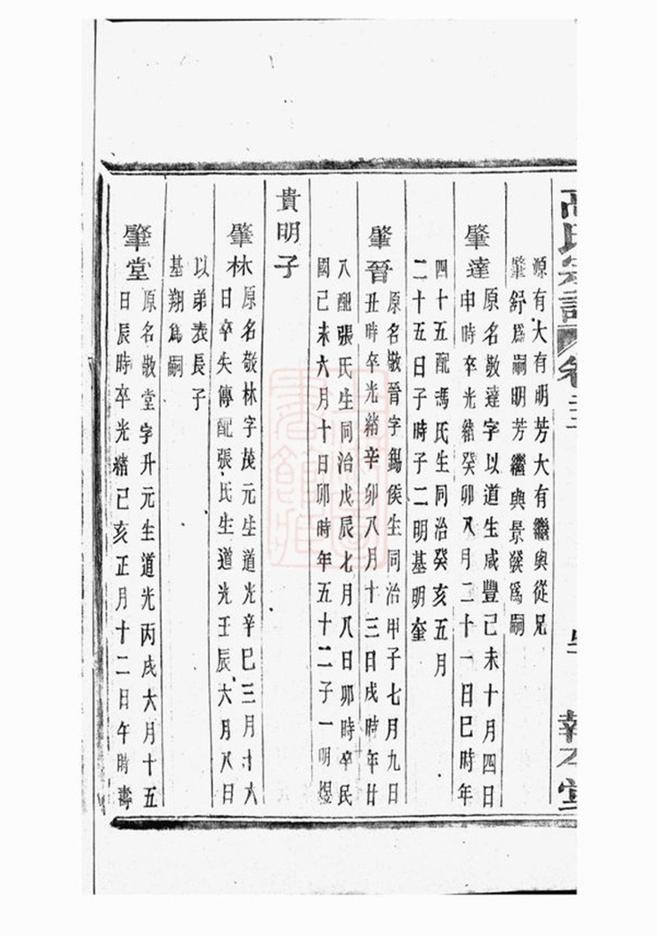 高氏宗譜 卷
報本堂
源有大有明芳大有繼與從兄
肇舒爲嗣明芳繼與景發爲嗣
肇達
原名敬達字以道生咸豐己未十月四日
申時卒光緒癸卯八月二十一日巳時年
四十五配馮氏生同治癸亥五月
二十五日子時子二明基明奎
肇晉
原名敬晉字錫侯生同治甲子七月九日
丑時卒光緒辛卯八月十三日戌時年廿
八配張氏生同治戊辰七月八日卯時卒民
國己未六月十日卯時年五十二子一明煜
貴明子
肇林
原名敬林字茂元生道光辛巳三月十六
日卒失傳配張氏生道光壬辰六月八日
以弟長子
基翔爲嗣
肇堂
原名敬堂字升元生道光丙戌六月十五
日辰時卒光緒己亥正月十二日午時壽